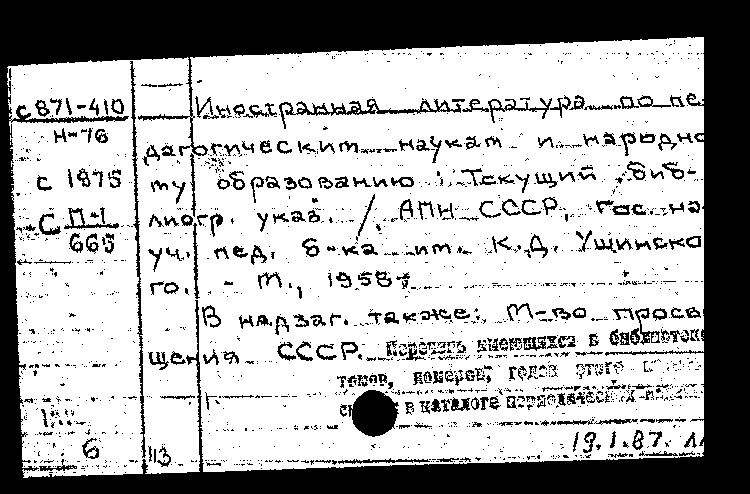 с871-410
Н-76
с 1975
С П-1
665
Иностранная литература по пе-
дагогическим наукам и народно
му образованию : Текущий биб-
лиогр. указ. / АПН СССР, Гос. на
уч. пед. б-ка им. К.Д. Ушинско
го. - М., 1958-
В надзаг. также: М-во просв
щения СССР. Перечень имеющихся в библиотеке
томов, номеров, годов этого
в каталоге периодических
6
113
19.1.87.